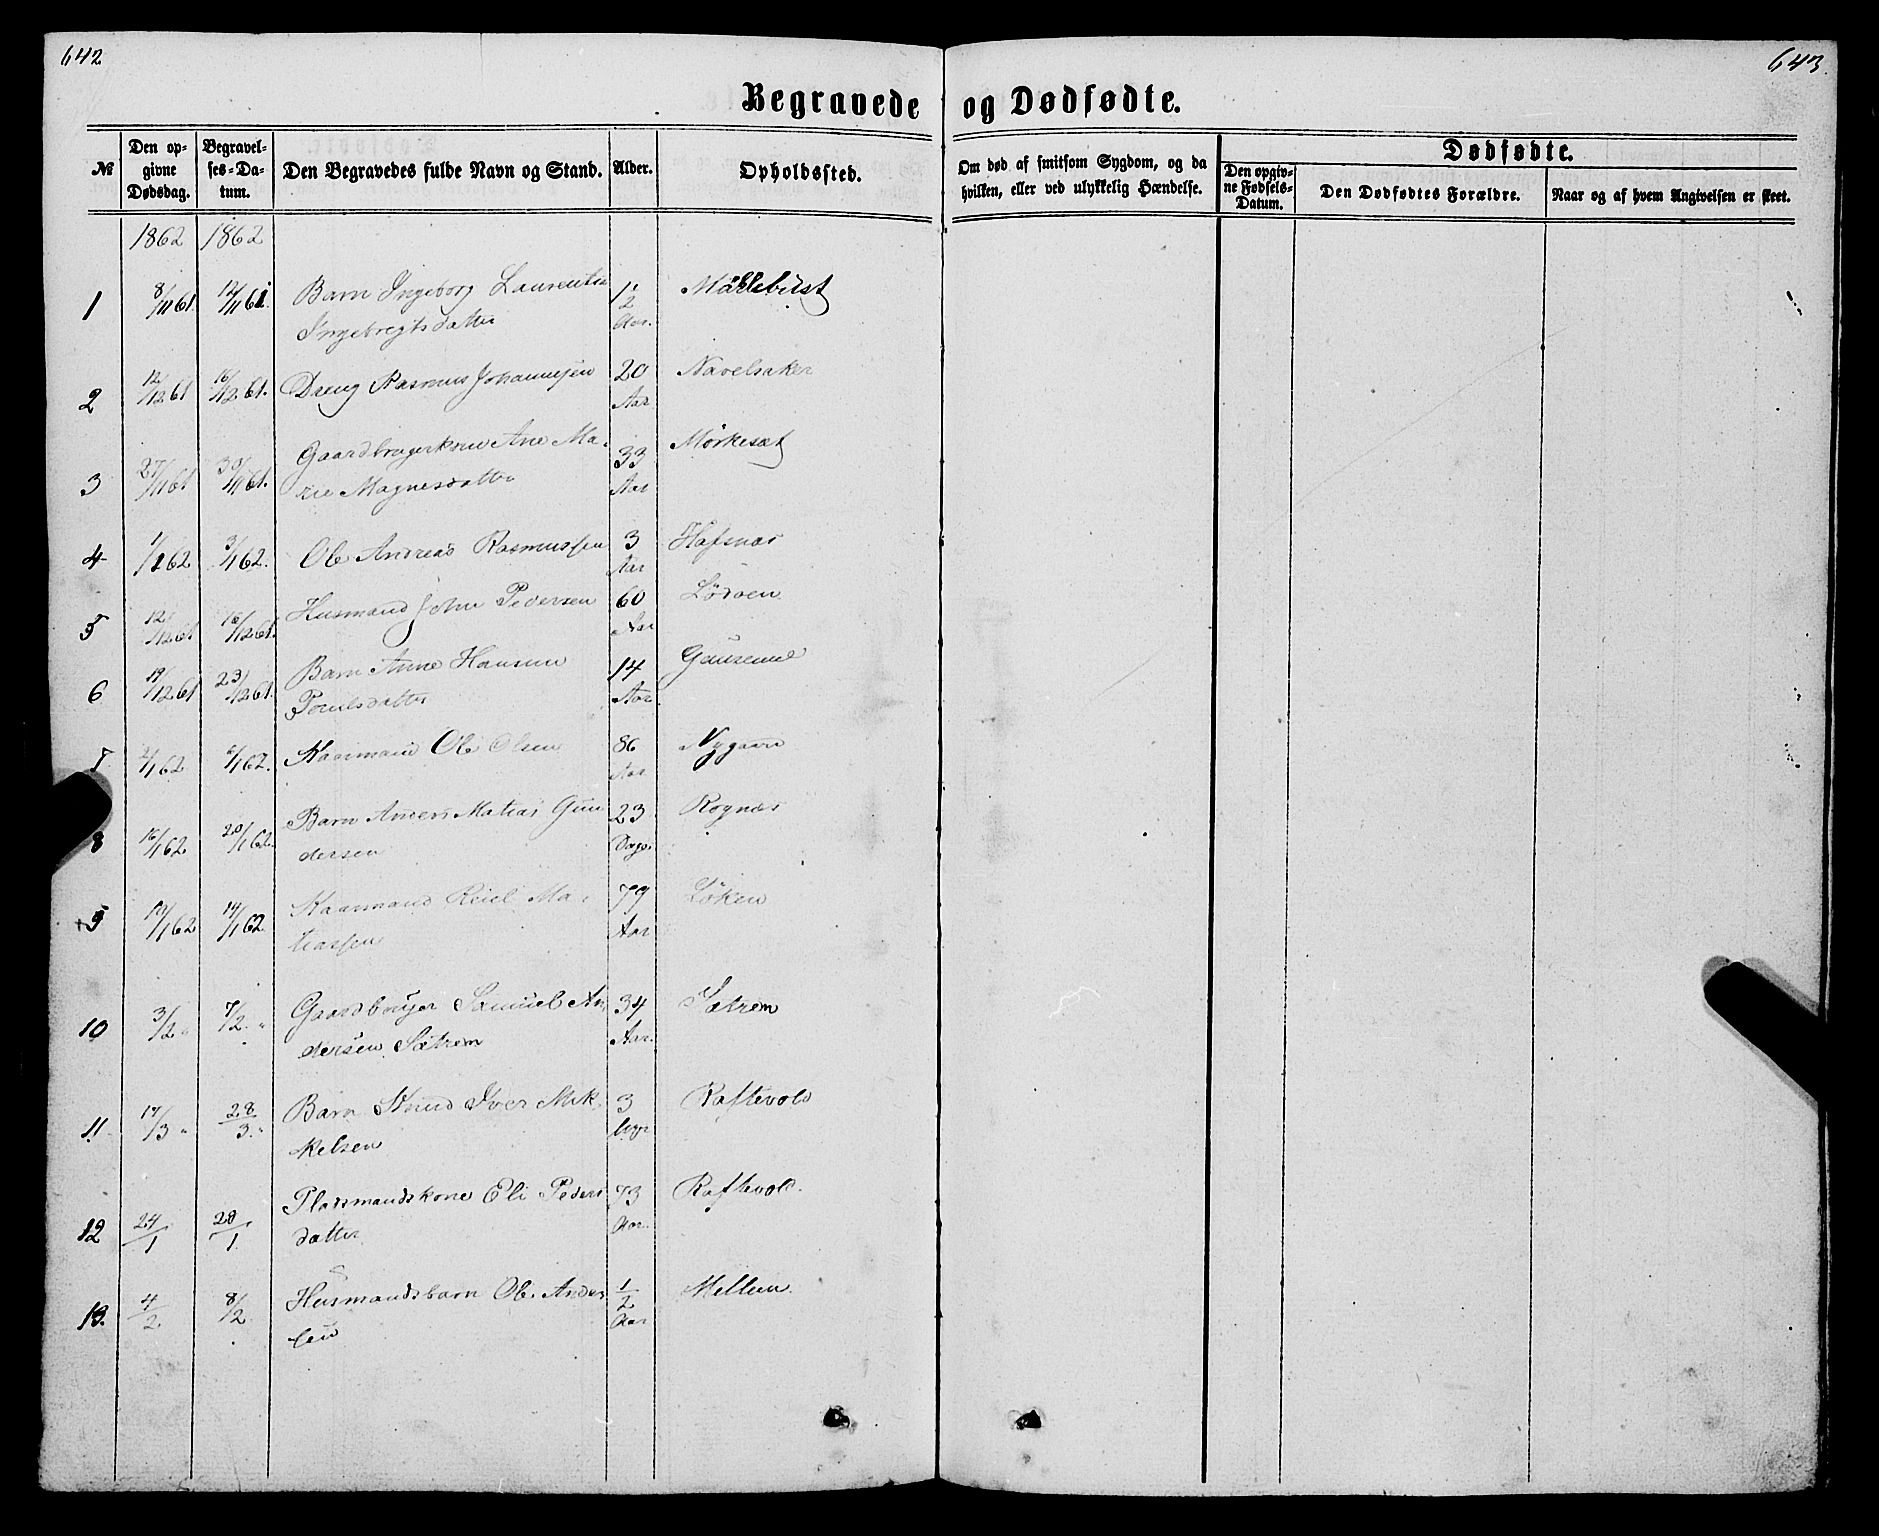 642
643.
Begravede og Dødfødte.
№
Den opgivne Dødsdag.
Begravelses-Datum.
Den Begravedes fulde Navn og Stand.
Alder.
Opholdssted.
Om død af smitsom Sygdom, og da hvilken, eller ved ulykkelig Hændelse.
Dødfødte.
Den opgivne Fødsels-Datum.
Den Dødfødtes Forældre.
Naar og af hvem Angivelsen er skeet.
1862 1862
1 8/11 61. 12/11 61. Barn Ingeborg Laurentse 1/2
Ingebregtsdatter Aar.
2 12/12 61 16/12 61. Dreng Rasmus Johannesen 20 Navelsaker
Aar
3 27/11 61 30/11 61. Gaardbrugerkone Ane Ma- 33 Mörkesæt
rie Magnesdatter Aar
4 1/1 62 3/1 62. Ole Andreas Rasmussen 3 Hafsnæs
Aar
5 12/12 61 16/12 61. Husmand John Pedersen 60 Lödöen
Aar
6 19/12 61 23/12 61. Barn Anne Hansine 14
Poulsdatter Aar.
7 2/1 62 6/1 62. Kaarmand Ole Olsen 86 Nygaard
Aar
8 16/1 62 20/1 62. Barn Anders Matias Gun 23 Rognæs
dersen Dage.
9 10/1 62 14/1 62. Kaarmand Reiel Ma- 79 Löken
tiassen Aar
10 3/2 " 7/2. " Gaardbruger Samuel An 34 Sætrem
dersen Sætrem Aar.
11. 17/3 " 28/3. " Barn Knud Iver Mik 3 Raftevold
kelsen Uger
12 24/1 28/1. Pladsmandskone Eli Peders 73 Raftevold.
datter Aar.
13. 4/2 8/2. Husmandsbarn Ole Ander 1/2 Mellem.
sen Aar